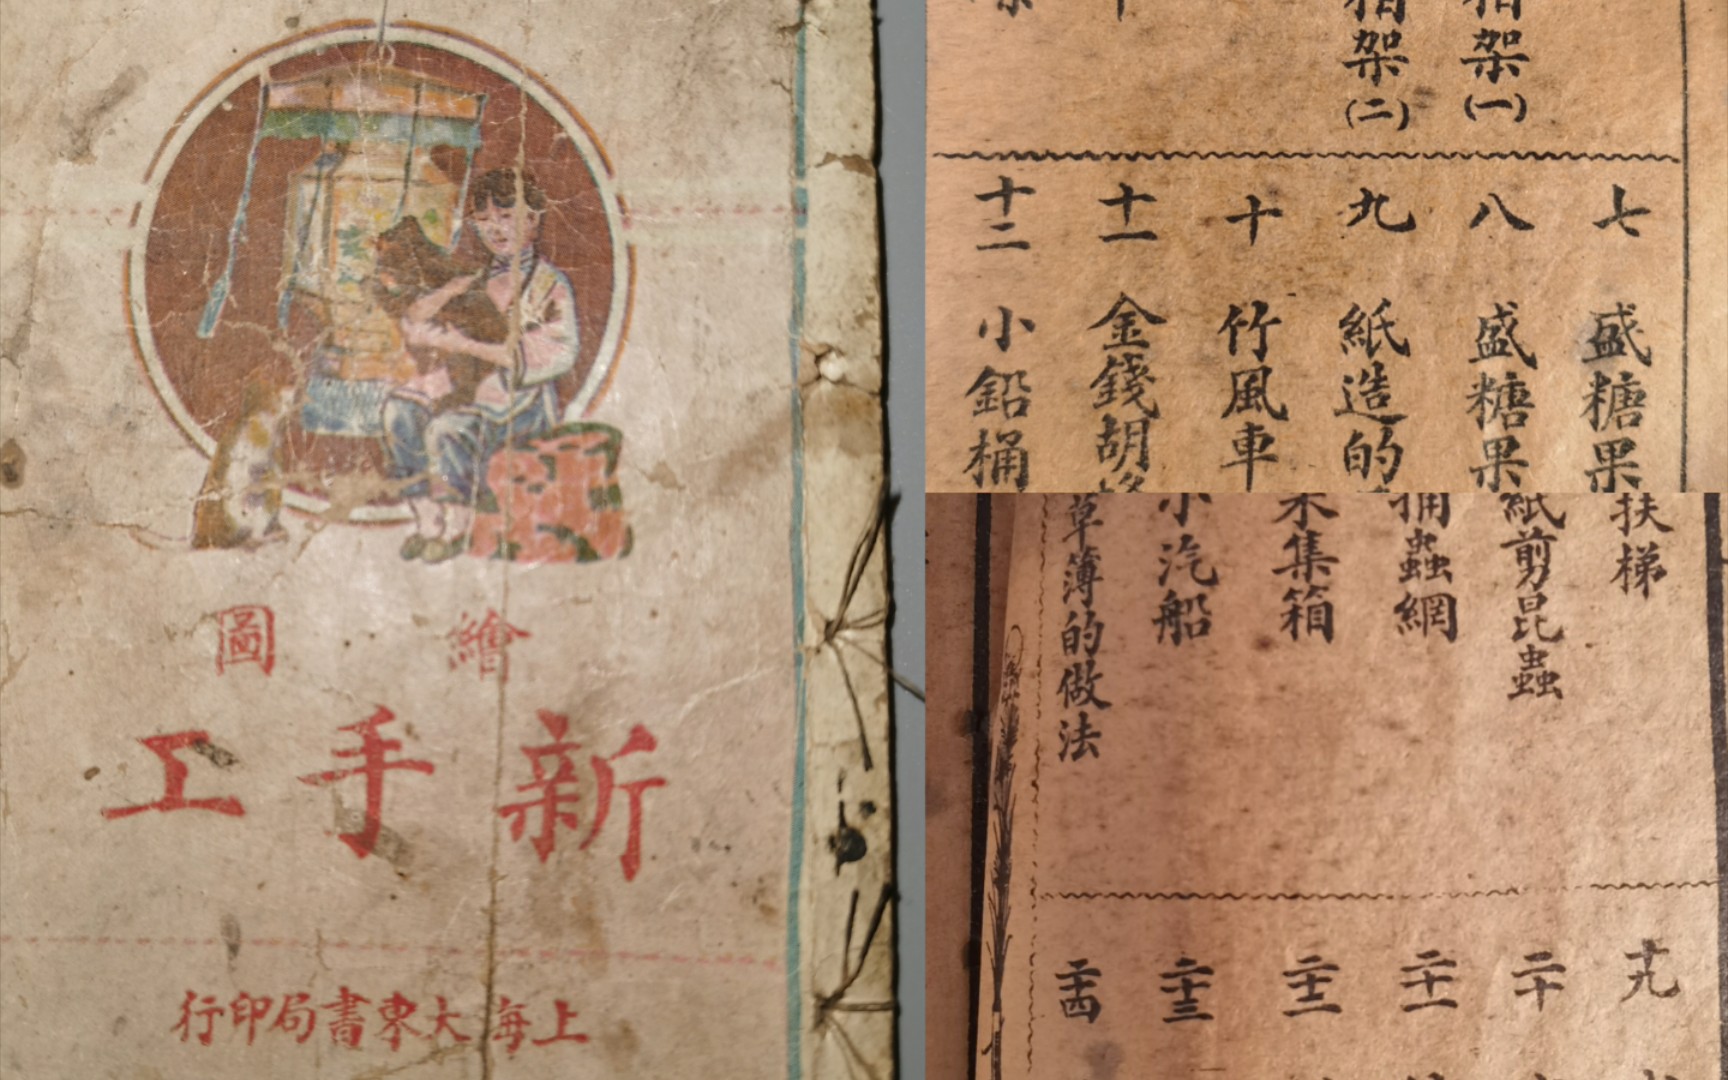 繪圖
新手工
上海大東書局印行
架(一)
架(二)
七 盛糖果
八 盛糖果
九 紙造的
十 竹風車
十一 金錢胡
十二 小鉛桶
扶梯
紙剪昆蟲
捕蟲網
集箱
小汽船
草簿的做法
十九
二十
二十一
二十二
二十三
二十四